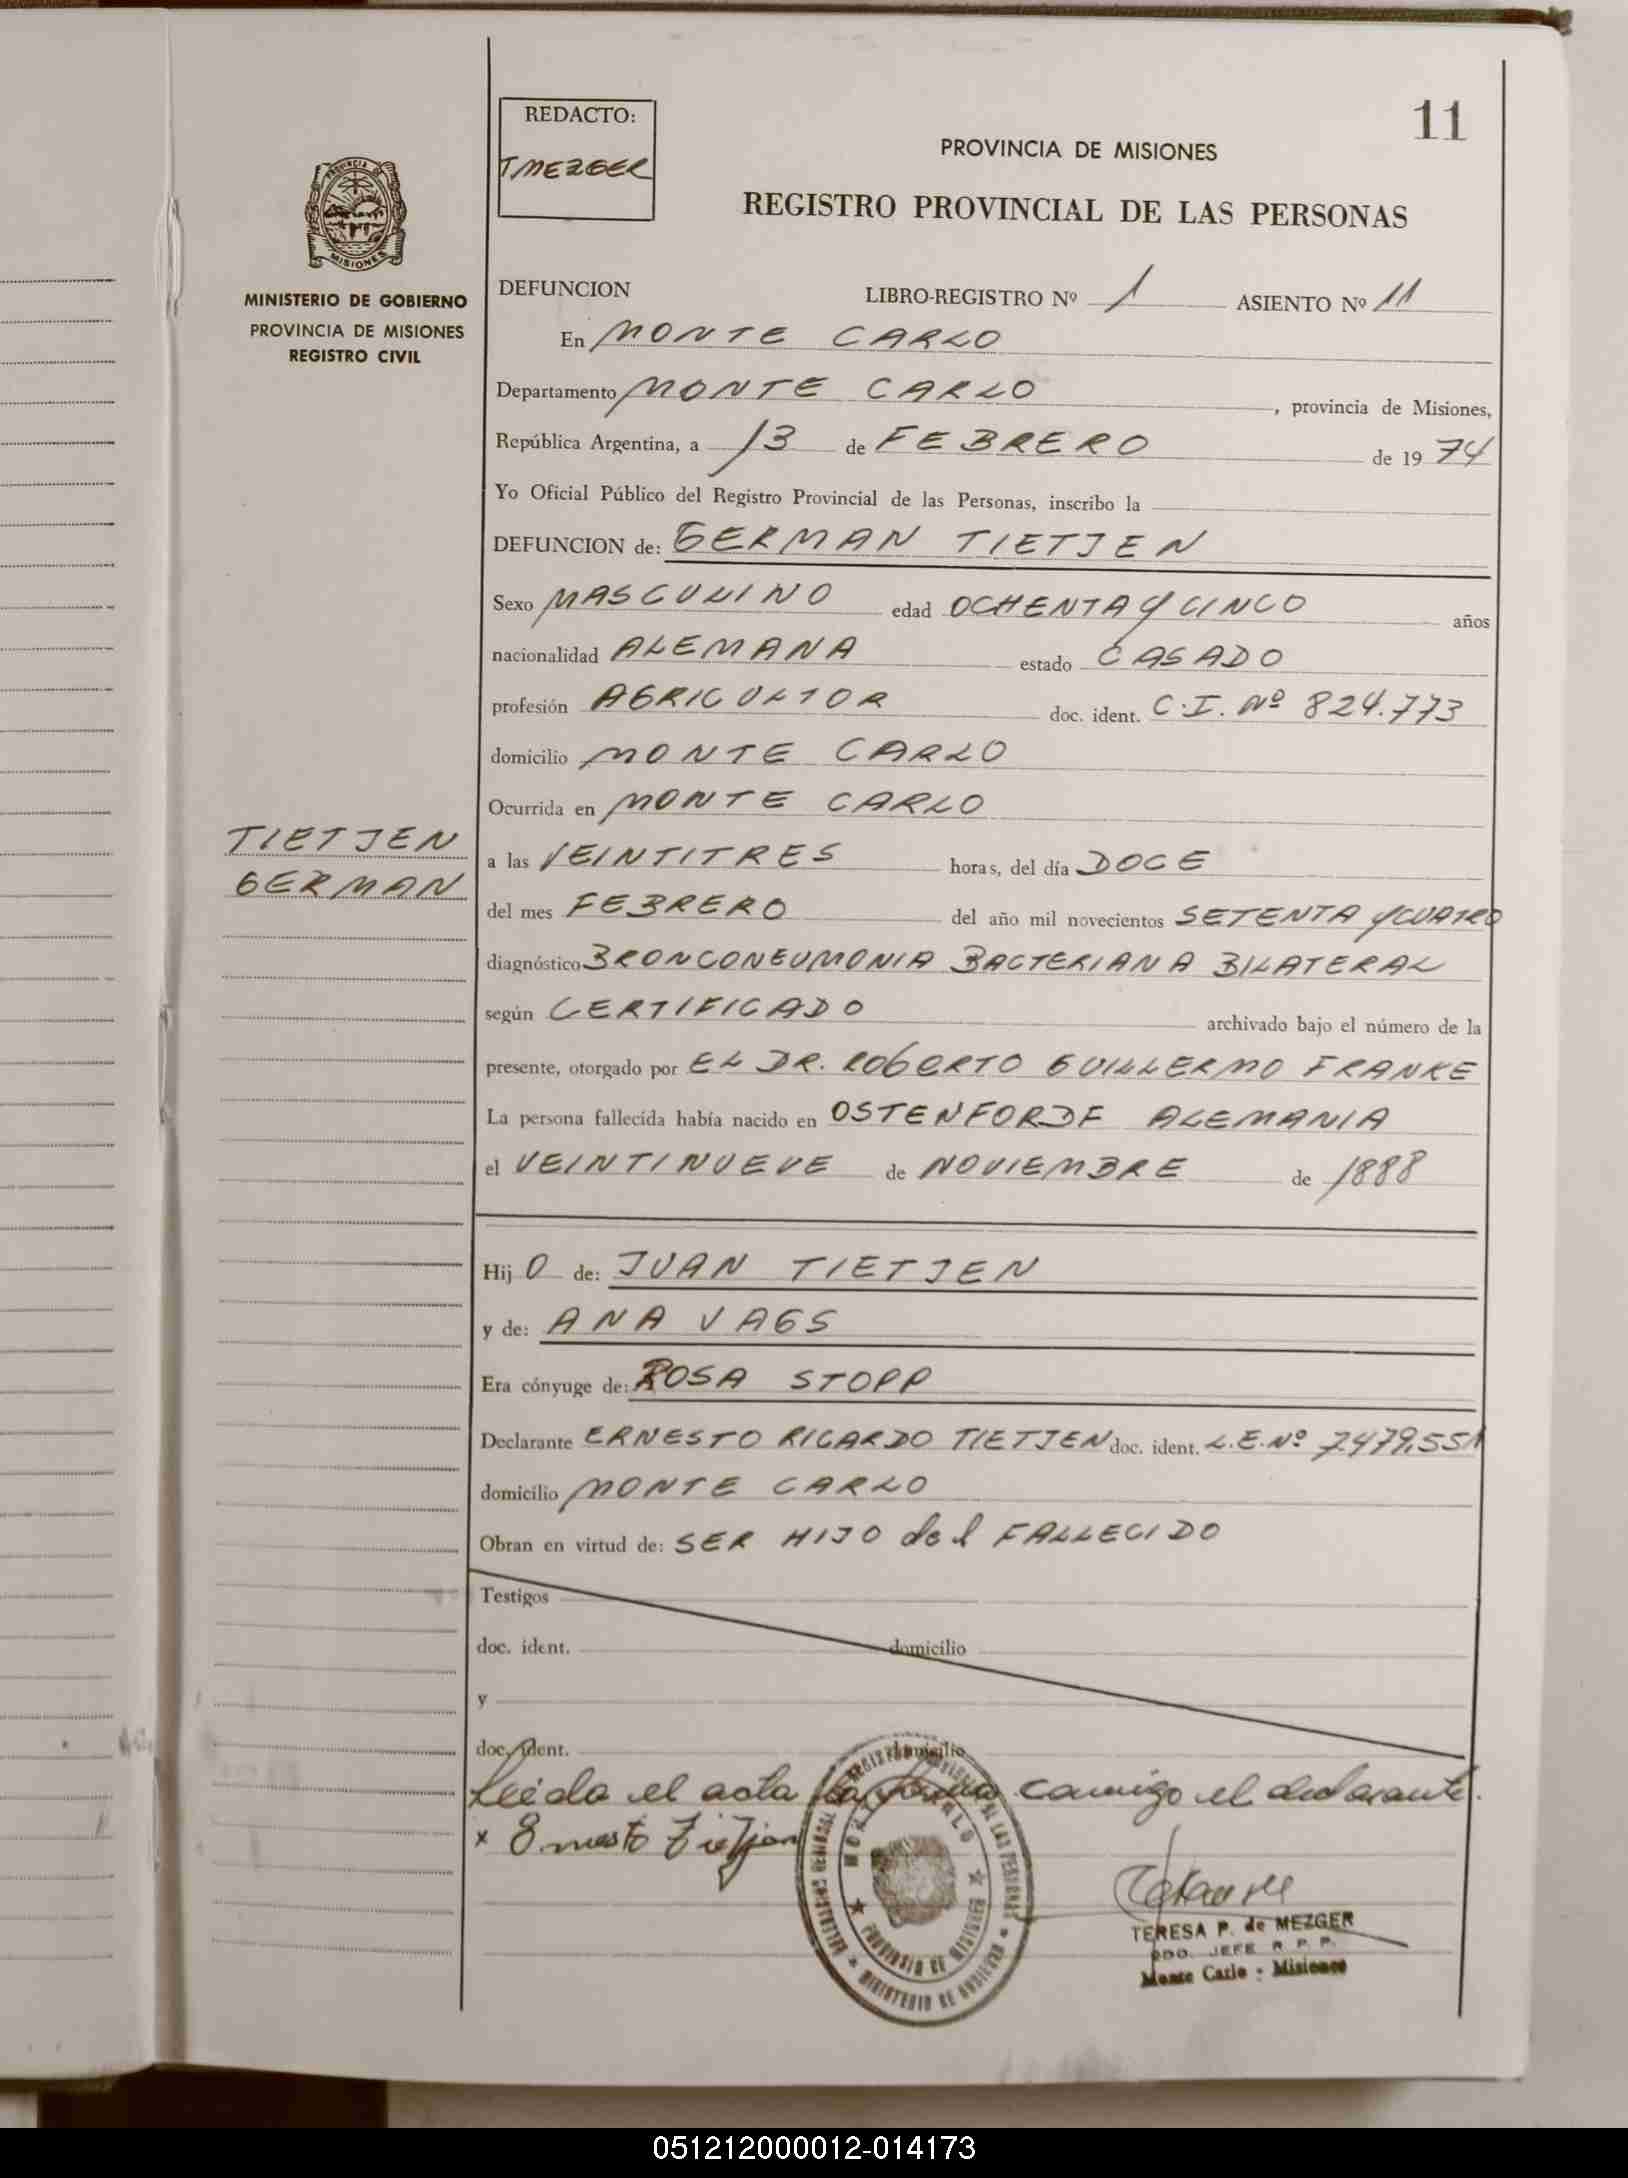 11
REDACTO:
T MEZGER
PROVINCIA DE MISIONES
REGISTRO PROVINCIAL DE LAS PERSONAS
PROVINCIA DE
MISIONES
MINISTERIO DE GOBIERNO
PROVINCIA DE MISIONES
REGISTRO CIVIL
DEFUNCION LIBRO-REGISTRO Nº 1 ASIENTO Nº 11
En MONTE CARLO
Departamento MONTE CARLO , provincia de Misiones,
República Argentina, a 13 de FEBRERO de 1974
Yo Oficial Público del Registro Provincial de las Personas, inscribo la
DEFUNCION de: GERMAN TIETJEN
Sexo MASCULINO edad OCHENTA Y CINCO años
nacionalidad ALEMANA estado CASADO
profesión AGRICULTOR doc. ident. C.I. Nº 824.773
domicilio MONTE CARLO
Ocurrida en MONTE CARLO
TIETJEN
GERMAN
a las VEINTITRES horas, del día DOCE
del mes FEBRERO del año mil novecientos SETENTA Y CUATRO
diagnóstico BRONCONEUMONIA BACTERIANA BILATERAL
según CERTIFICADO archivado bajo el número de la
presente, otorgado por EL DR. ROBERTO GUILLERMO FRANKE
La persona fallecida había nacido en OSTENFORDF ALEMANIA
el VEINTINUEVE de NOVIEMBRE de 1888
Hij O de: JUAN TIETJEN
y de: ANA VAGS
Era cónyuge de: ROSA STOPP
Declarante ERNESTO RICARDO TIETJEN doc. ident. L.E. Nº 7.479.551
domicilio MONTE CARLO
Obran en virtud de: SER HIJO del FALLECIDO
Testigos
doc. ident. domicilio
y
doc. ident. domicilio
Leída el acta la firma conmigo el declarante.
x Ernesto Tietjen
MONTE CARLO
PROVINCIA DE MISIONES
MINISTERIO DE GOBIERNO
TERESA P. de MEZGER
JEFE R. P. P.
Monte Carlo - Misiones
051212000012-014173